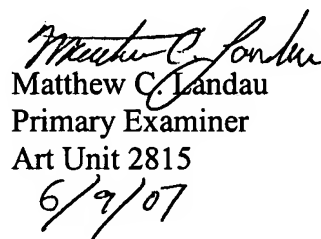 Matthew C. Landau
Matthew C. Landau
Primary Examiner
Art Unit 2815
6/9/07